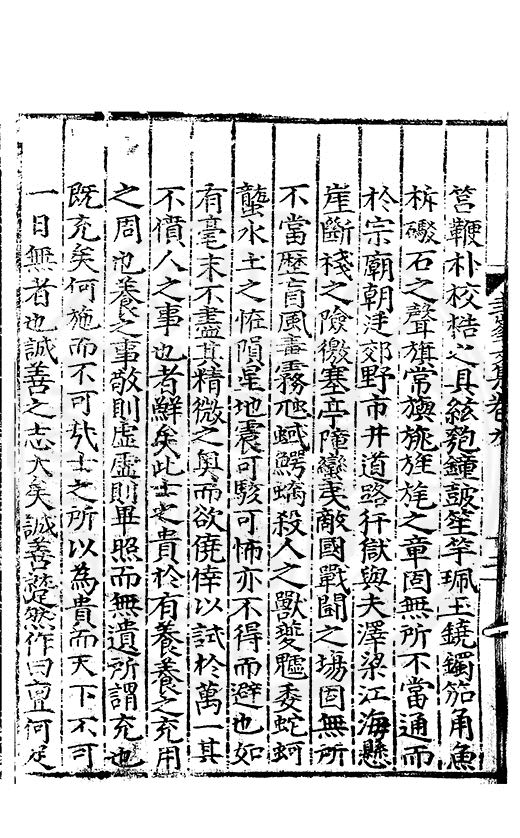 筥鞭朴校梏之具絃匏鐘鼓笙竽珮玉鐃鐲笳角魚
柝礮石之聲旗常旟旐旌旄之章固無所不當通而
於宗廟朝廷郊野市井道路行獄與夫澤梁江海懸
崖斷棧之險徼塞亭障蠻夷敵國戰鬪之場固無所
不當歷盲風毒霧虺蜮鰐蟜殺人之獸夔魖委蛇蚵
蠪水土之恠隕星地震可駭可怖亦不得而避也如
有毫末不盡其精微之奧而欲僥倖以試於萬一其
不僨人之事也者鮮矣此士之貴於有養養之充用
之周也養之事敬則虛虛則畢照而無遺所謂充也
既充矣何施而不可㢤士之所以為貴而天下不可
一日無者也誠善之志大矣誠善蹵然作曰亶何足